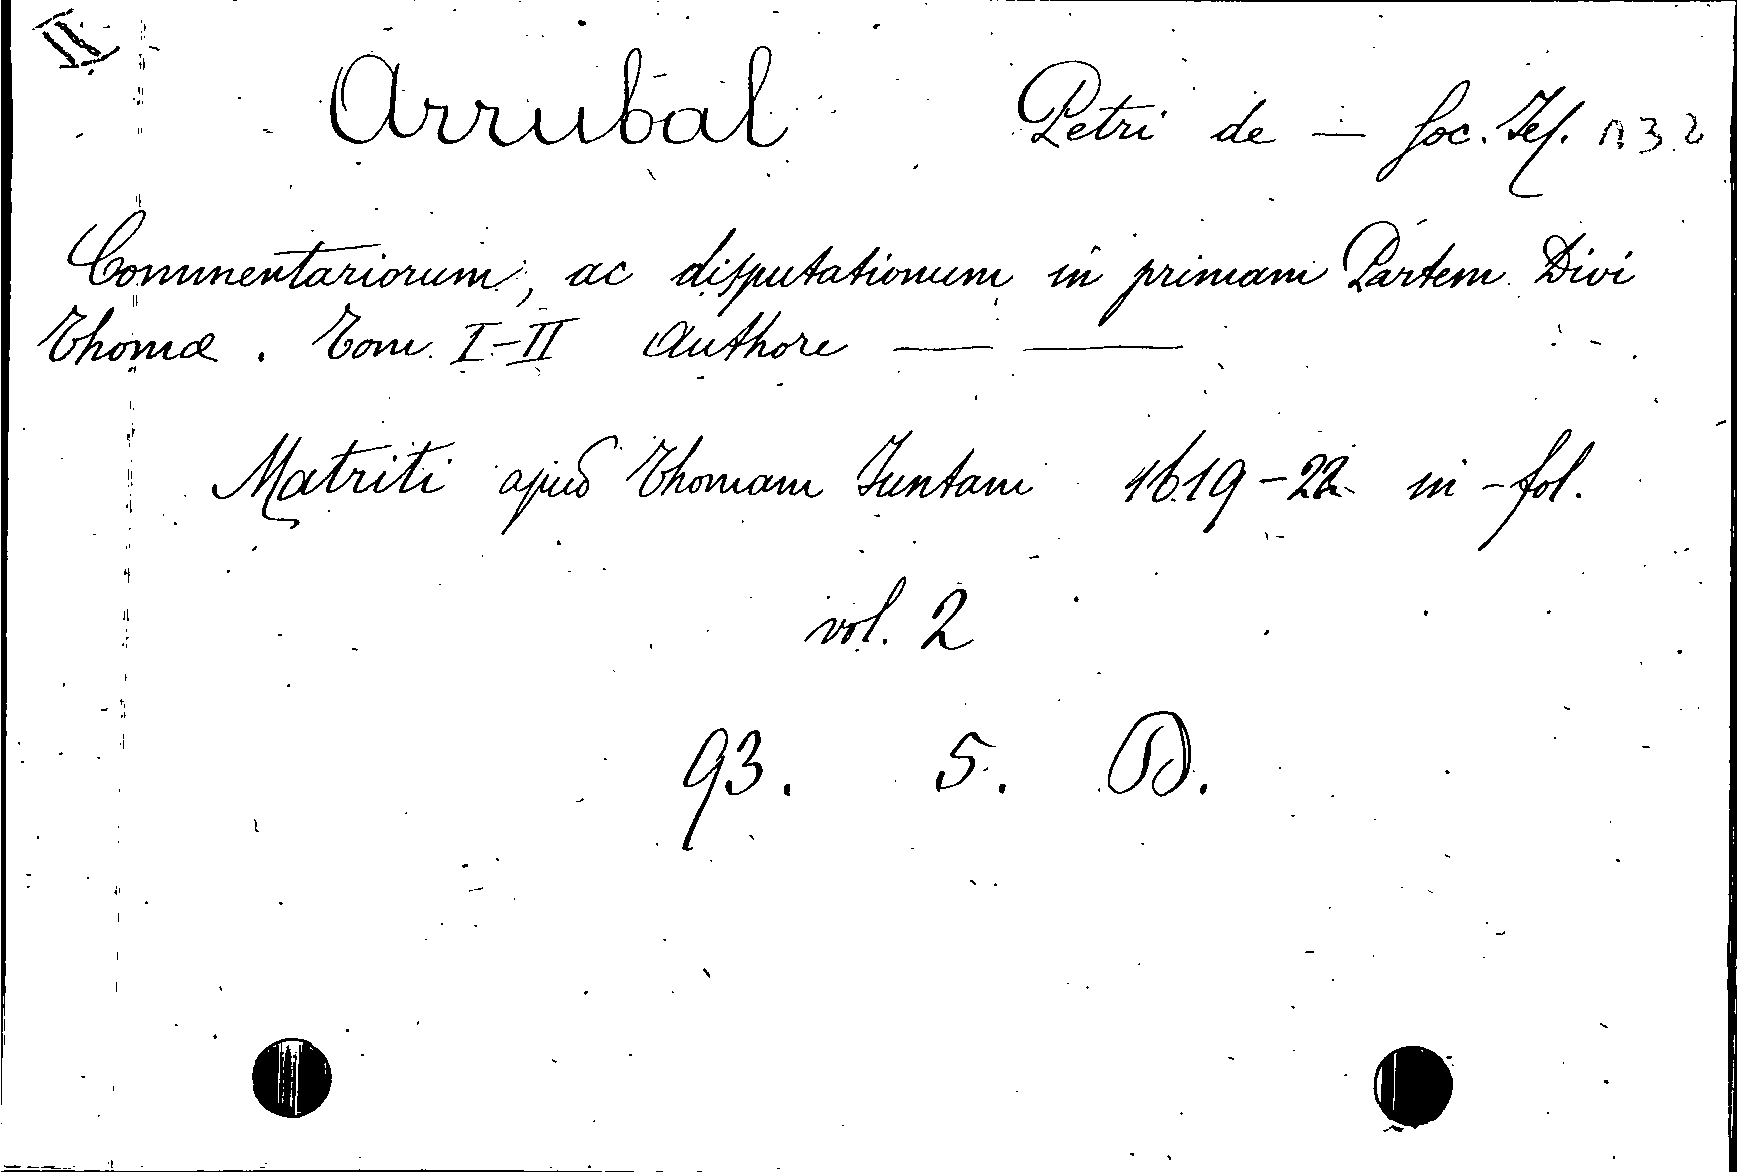 II
Arrubal Petri de — Soc. Jes. 132
Commentariorum, ac disputationum in primam Partem Divi
Thomæ. Tom. I-II Authore — —
Matriti apud Thomam Juntam 1619-22 in-fol.
vol. 2
93. 5. D.